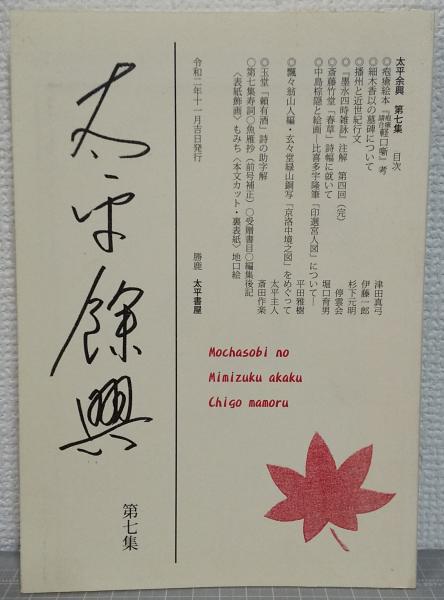 太平余興　第七集　　目次
◎疱瘡絵本『疱瘡請合軽口噺』考　津田真弓
◎細木香以の墓碑について　伊藤一郎
◎播州と近世紀行文　杉下元明
◎『墨水四時雑詠』注解　第四回（完）　停雲会
◎斎藤竹堂「春草」詩幅に就いて　堀口育男
◎中島棕隠と絵画―比喜多宇隆筆「印選宮人図」について―　平田雅樹
◎飄々翁山人編・玄々堂緑山銅写『京洛中境之図』をめぐって　太平主人
◎玉堂「頼有酒」詩の助字解　斎田作楽
〇第七集寿詞〇魚雁抄（前号補正）〇受贈書目〇編集後記
〈表紙飾画〉もみぢ〈本文カット・裏表紙〉地口絵
令和二年十一月吉日発行　勝鹿　太平書屋
太平餘興
第七集
Mochasobi no
Mimizuku akaku
Chigo mamoru